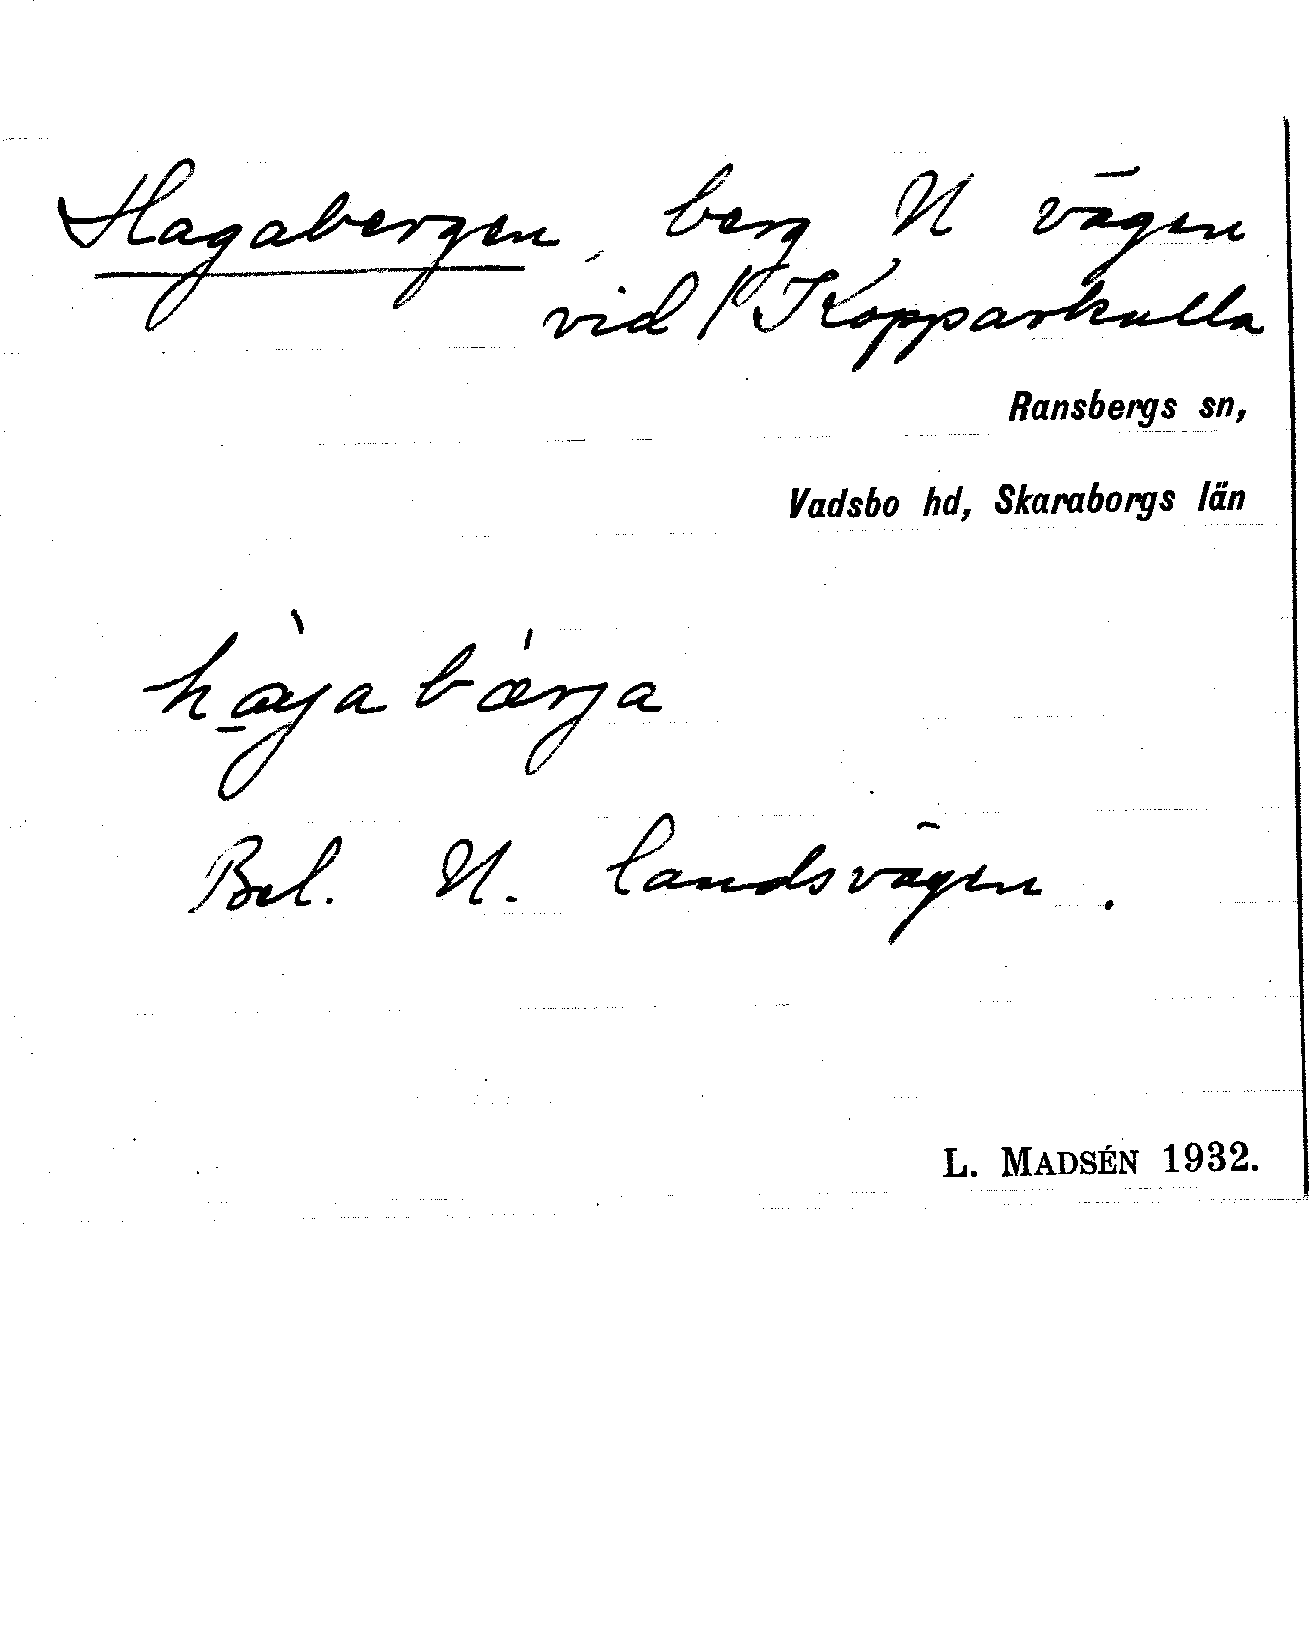 Hagabergen, berg N vägen
vid Kopparkulla
Ransbergs sn,
Vadsbo hd, Skaraborgs län
Bel. N. landsvägen.
L. MADSÉN 1932.